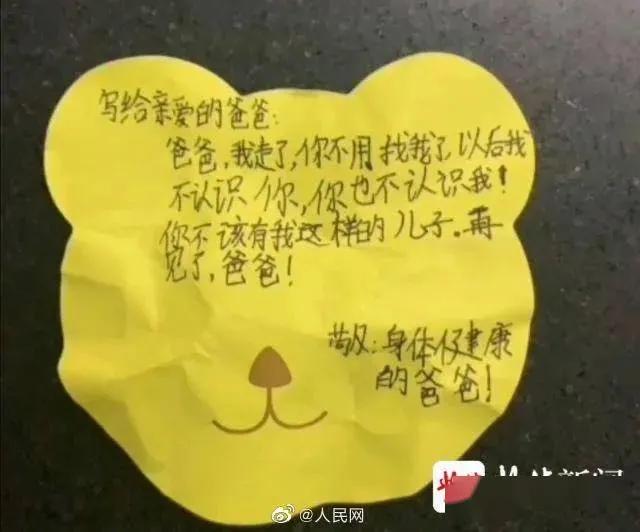 写给亲爱的爸爸:
爸爸,我走了,你不用找我了以后我
不认识你,你也不认识我!
你不该有我这样的儿子.再
见了,爸爸!
敬:身体健康
的爸爸!
@人民网